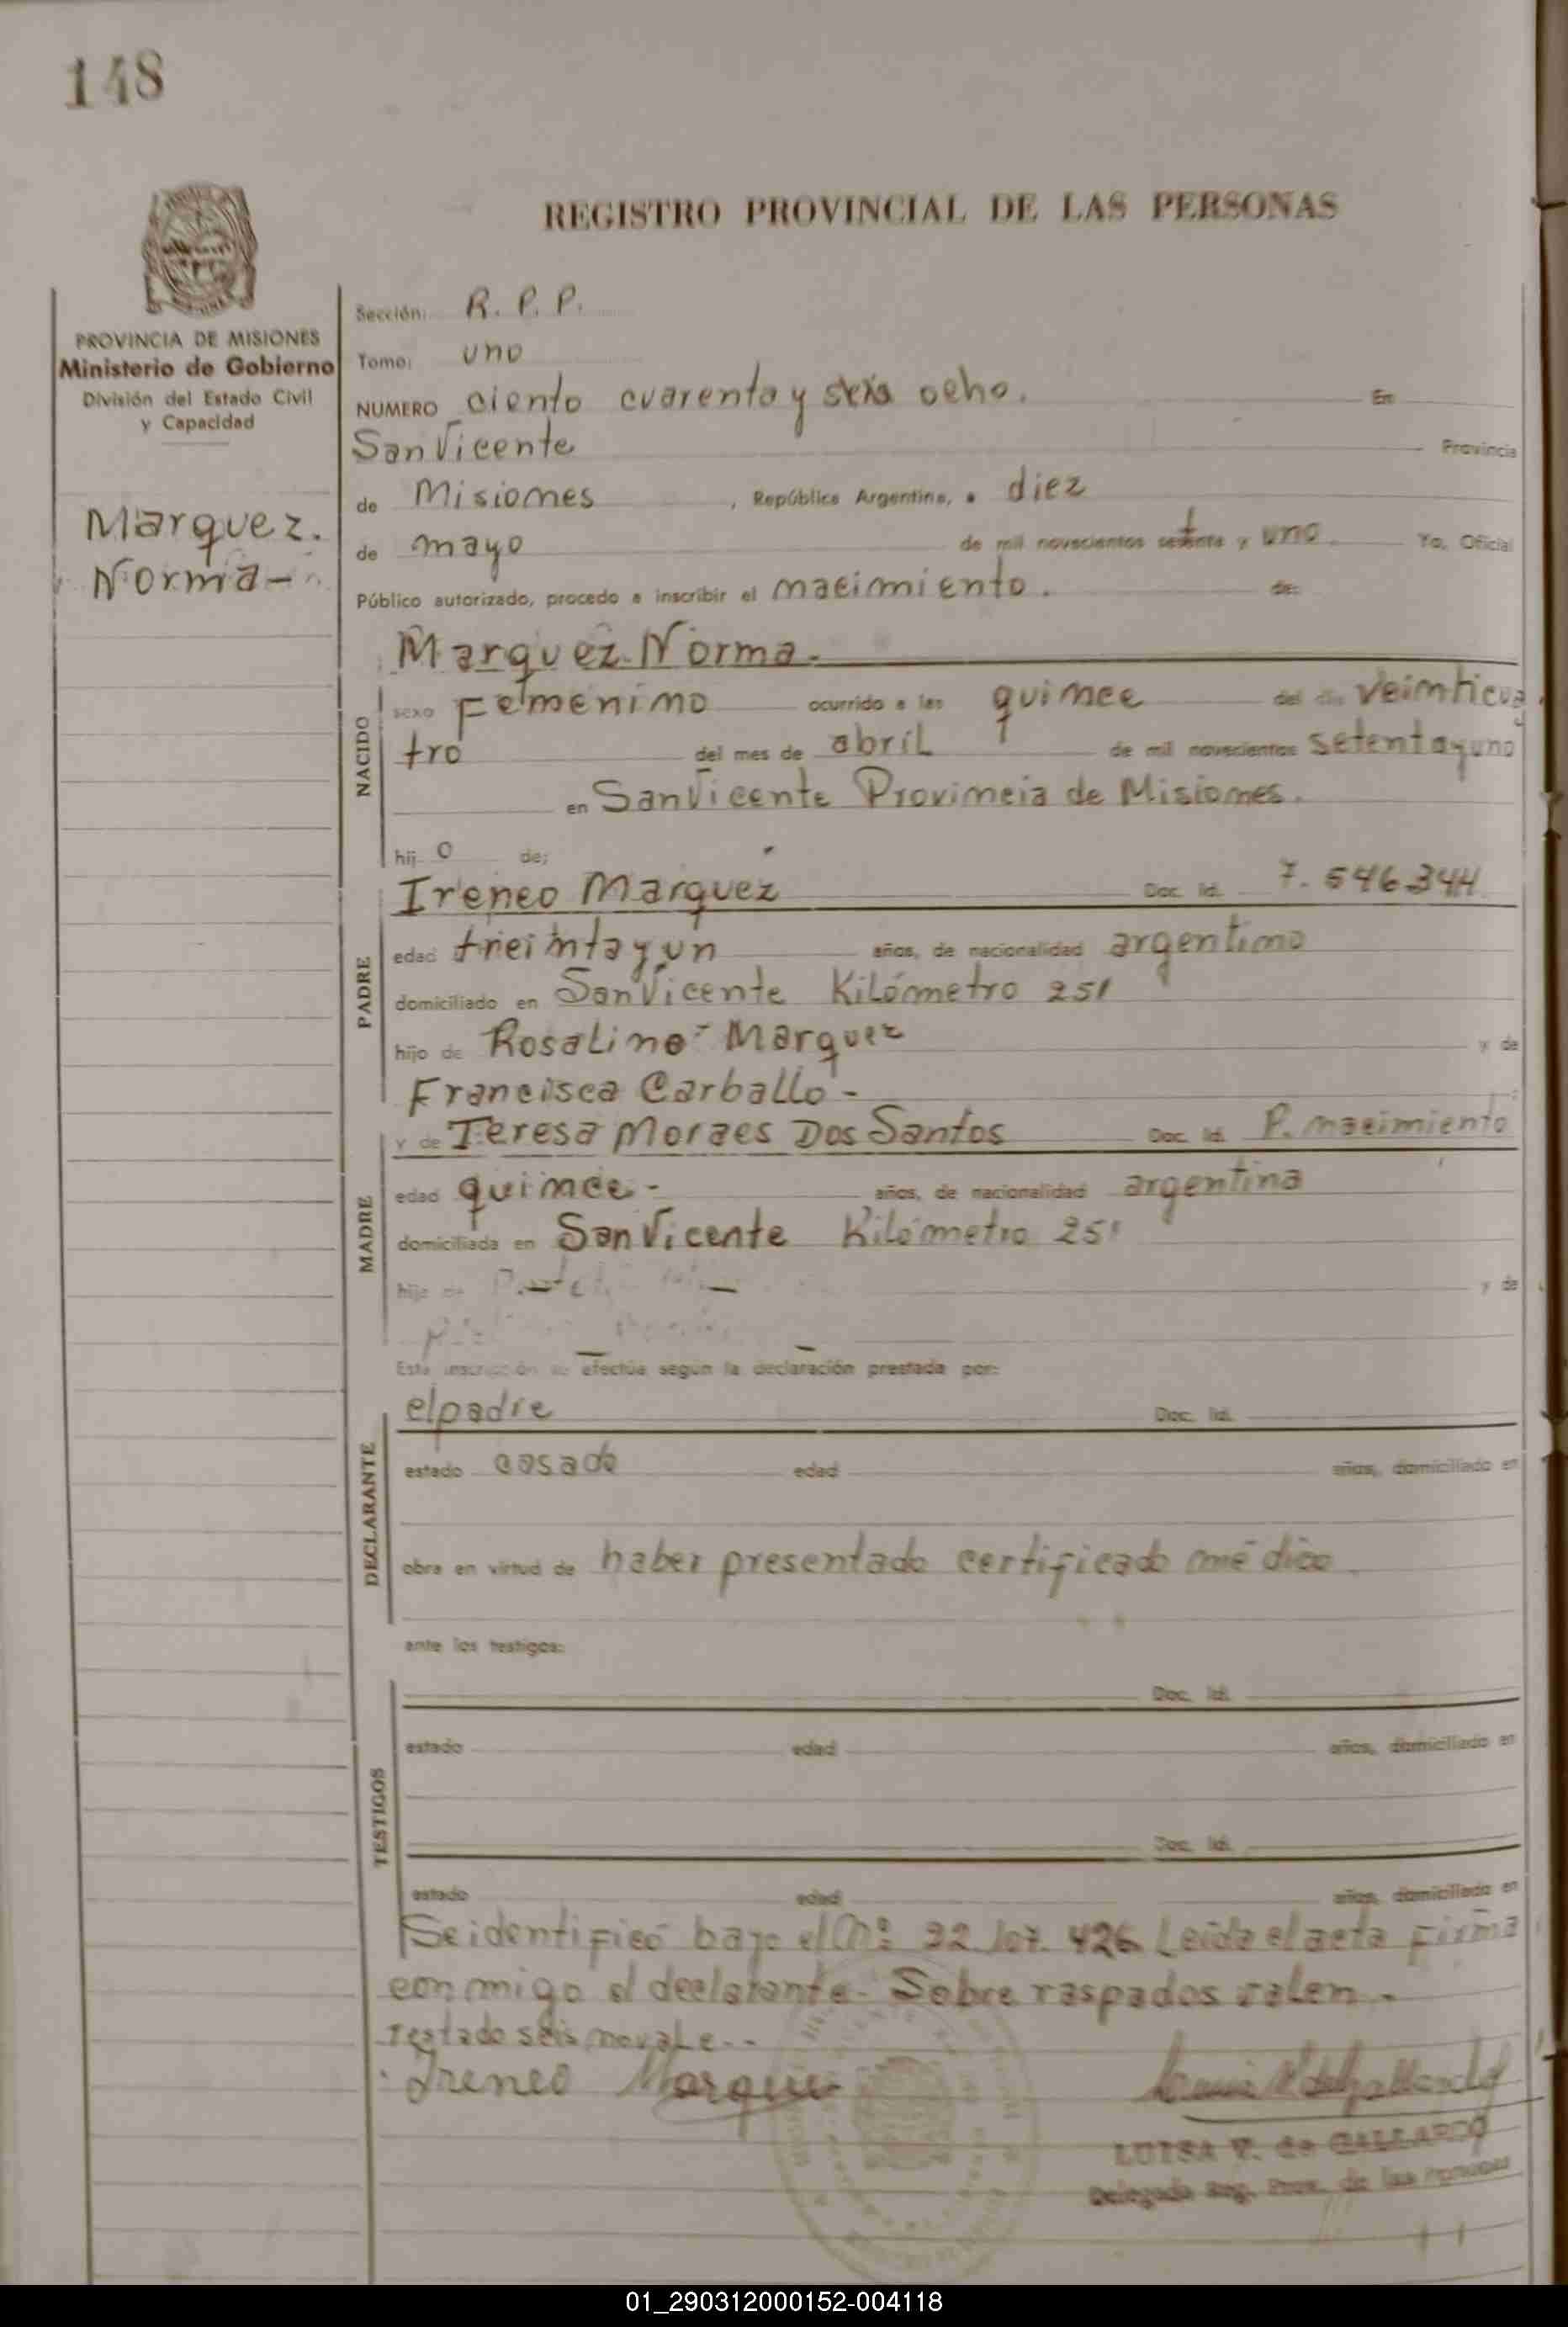 148
REGISTRO PROVINCIAL DE LAS PERSONAS
PROVINCIA DE MISIONES
Ministerio de Gobierno
División del Estado Civil
y Capacidad
Marquez.
Norma-
Sección: R. P. P.
Tomo: uno
NUMERO ciento cuarenta y seis ocho. En
San Vicente Provincia
de Misiones, República Argentina, a diez
de mayo de mil novecientos setenta y uno. Yo, Oficial
Público autorizado, procedo a inscribir el nacimiento. de:
Marquez Norma.
NACIDO
sexo Femenino ocurrido a las quince del día veinticua
tro del mes de abril de mil novecientos setenta y uno
en San Vicente Provincia de Misiones.
hij o de;
PADRE
Ireneo Marquez Doc. Id. 7.546344
edad treinta y un años, de nacionalidad argentino
domiciliado en San Vicente Kilómetro 251
hijo de Rosalino Marquez y de
Francisca Carballo -
MADRE
y de Teresa Moraes Dos Santos Doc. Id. P. nacimiento
edad quince - años, de nacionalidad argentina
domiciliada en San Vicente Kilómetro 251
hija de y de
Esta inscripción se efectúa según la declaración prestada por:
DECLARANTE
el padre Doc. Id.
estado casado edad años, domiciliado en
obra en virtud de haber presentado certificado médico
ante los testigos:
TESTIGOS
Doc. Id.
estado edad años, domiciliado en
Doc. Id.
estado edad años, domiciliado en
Se identificó bajo el Nº 22.107.426 Leída el acta firma
conmigo el declarante. Sobre raspados valen.-
Testado seis no vale--
Ireneo Marquez
LUISA V. de GALLARDO
Delegada Reg. Prov. de las Personas
01_290312000152-004118